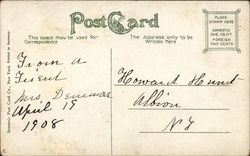 PostCard
This space may be used for Correspondence
The Address only to be Written Here
PLACE STAMP HERE
DOMESTIC ONE CENT
FOREIGN TWO CENTS
From a
Friend
Mrs.
April 19
1908
Howard Hunt
Albion
N Y